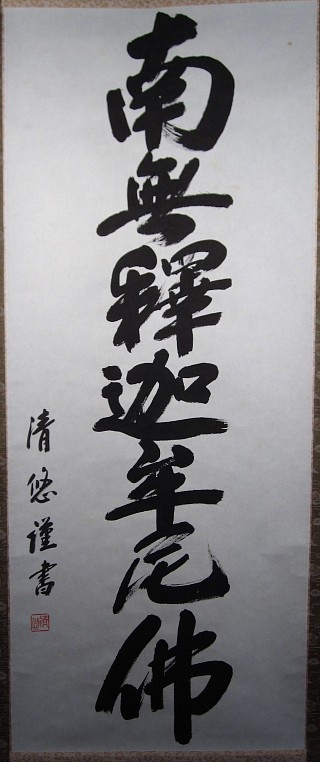 南無釋迦牟尼佛
清悠謹書